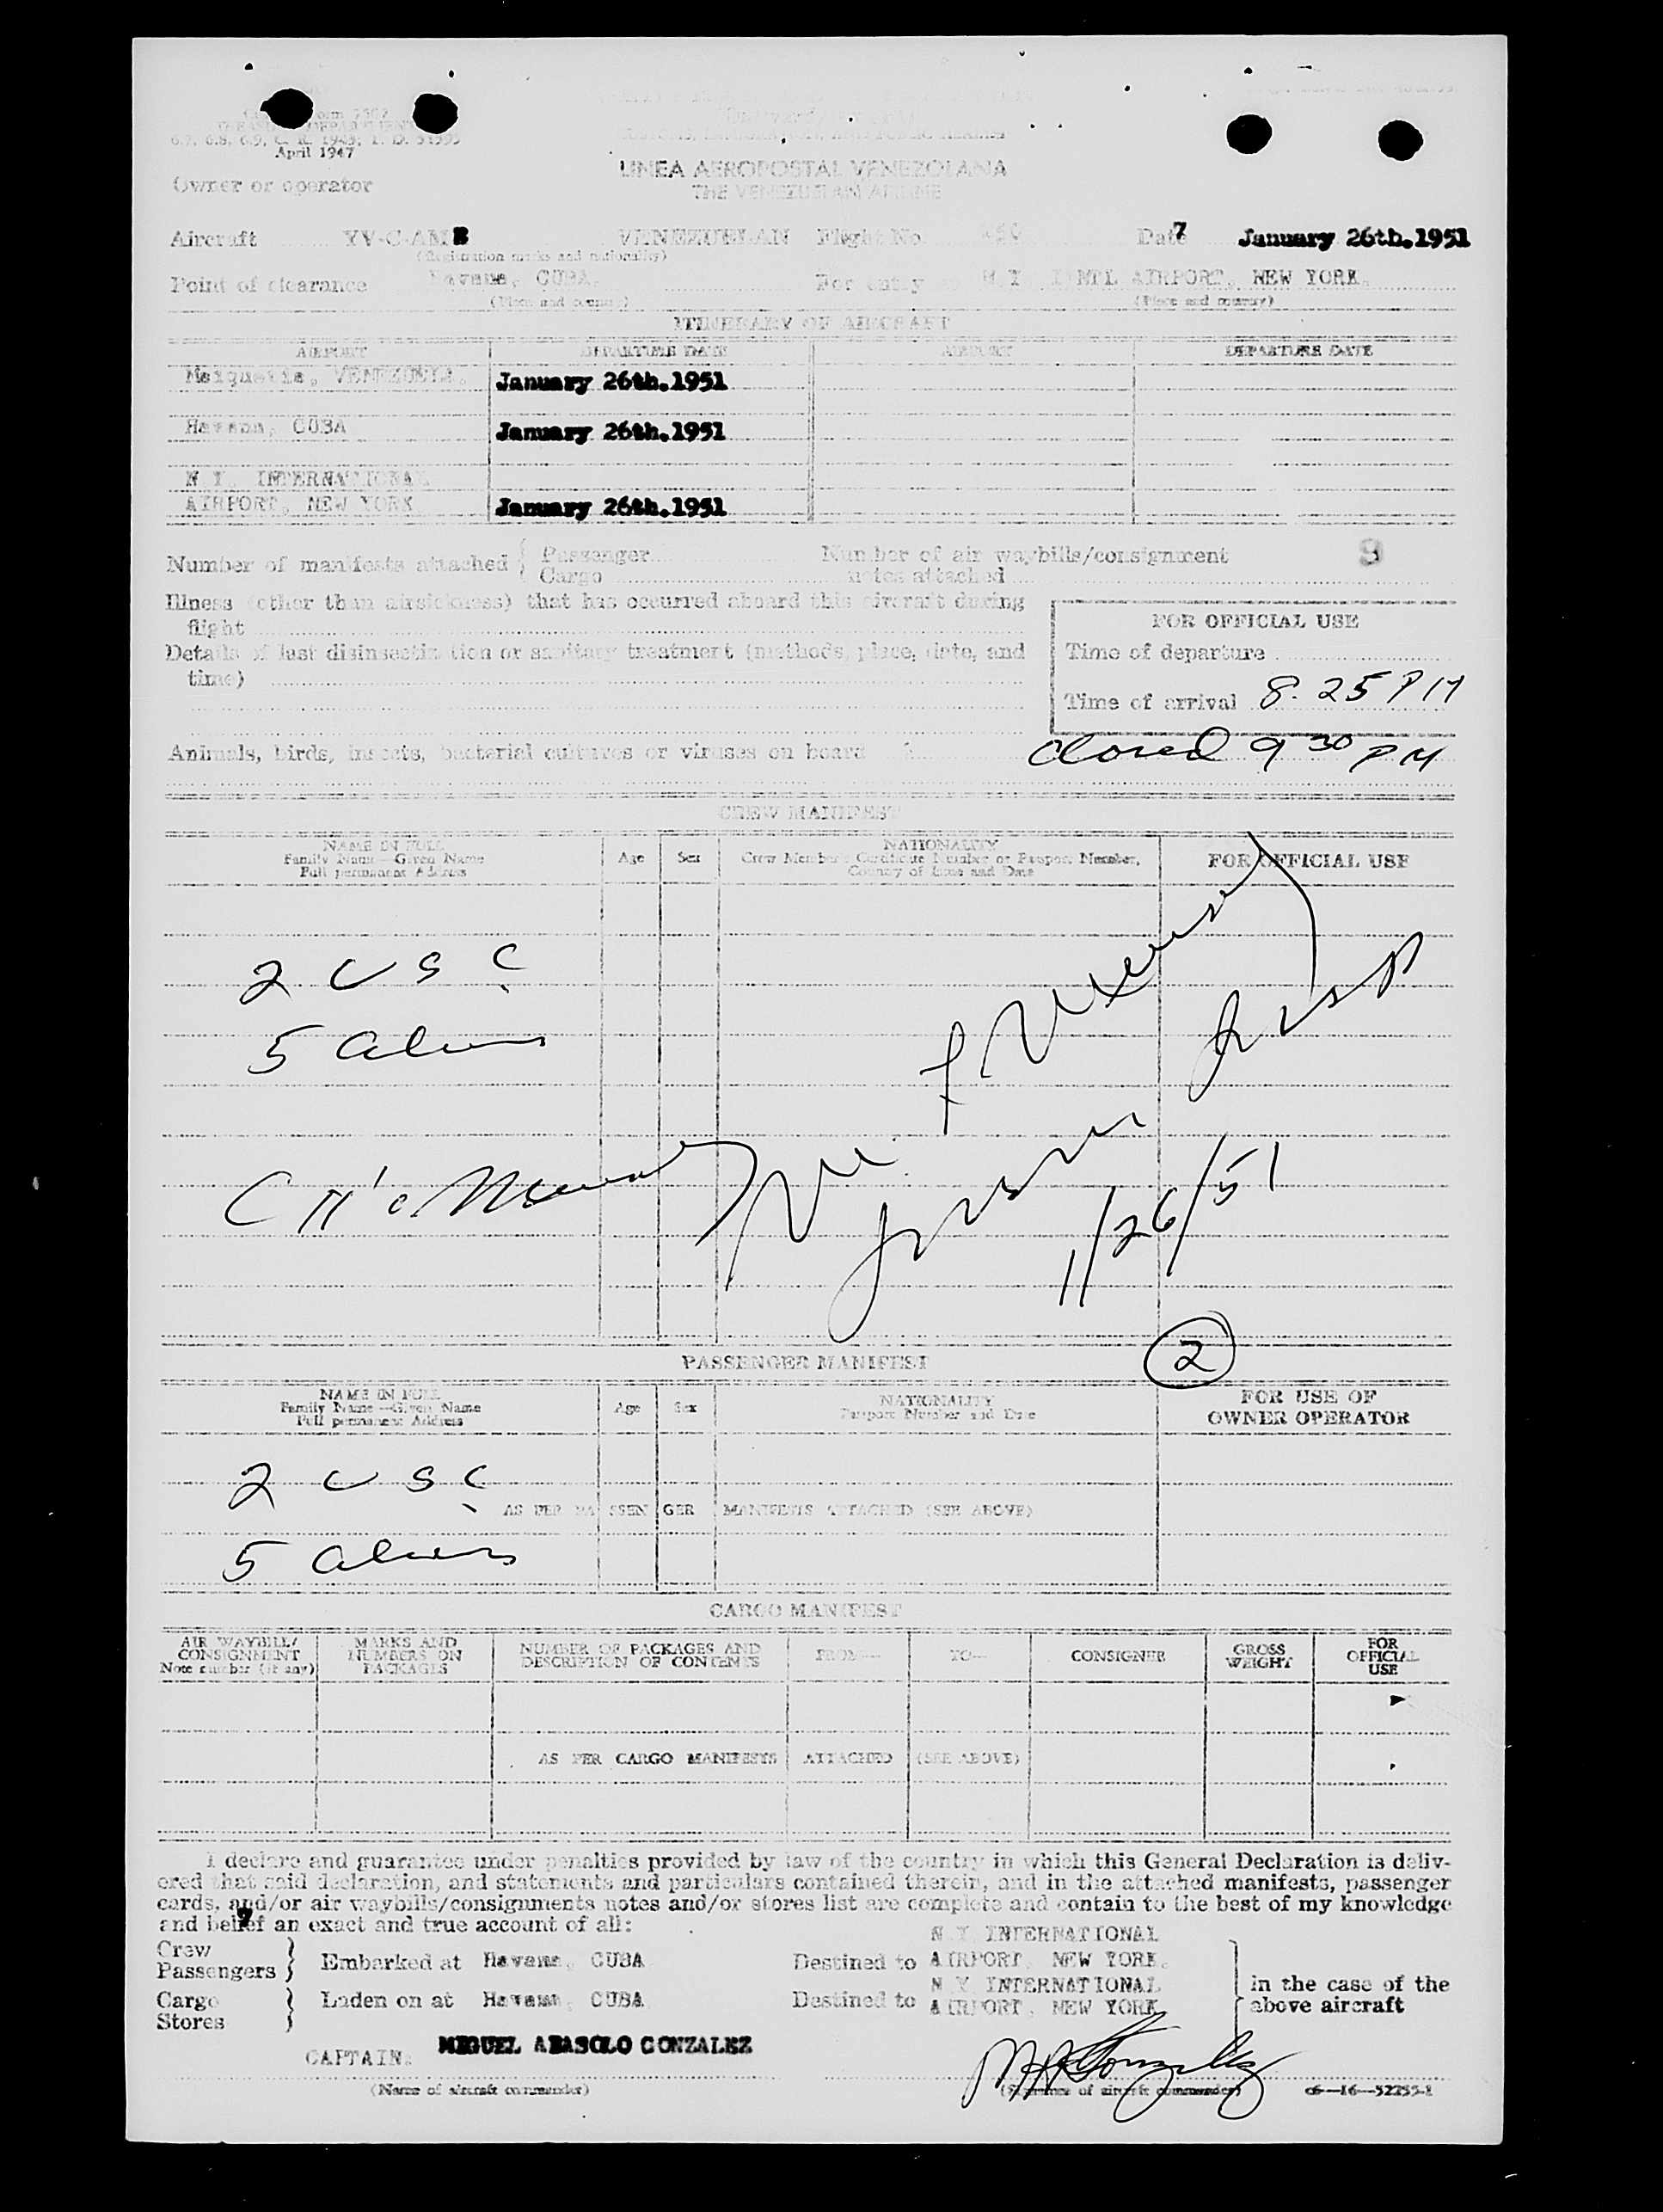 April 1947
LINEA AEROPOSTAL VENEZOLANA
THE VENEZUELAN AIRLINE
Owner or operator
Aircraft YV-C-AMB VENEZUELAN Flight No. Date January 26th.1951
(Registration marks and nationality)
Point of clearance Havana, CUBA. For entry N.Y. INTL AIRPORT, NEW YORK.
(Place and country) (Place and country)
ITINERARY OF AIRCRAFT
AIRPORT DEPARTURE DATE AIRPORT DEPARTURE DATE
Maiquetia, VENEZUELA. January 26th.1951
Havana, CUBA January 26th.1951
N Y. INTERNATIONAL
AIRPORT, NEW YORK January 26th.1951
Number of manifests attached { Passenger Number of air waybills/consignment 9
Cargo notes attached
Illness (other than airsickness) that has occurred aboard this aircraft during
flight
FOR OFFICIAL USE
Details of last disinsectization or sanitary treatment (methods, place, date, and
time)
Time of departure
Time of arrival 8.25 PM
Closed 9 30 PM
Animals, birds, insects, bacterial cultures or viruses on board
CREW MANIFEST
NAME IN FULL
Family Name—Given Name
Full permanent Address
Age Sex
NATIONALITY
Crew Member's Certificate Number or Passport Number,
Country of Issue and Date
FOR OFFICIAL USE
2 USC
5 aliens
1/26/51
2
PASSENGER MANIFEST
NAME IN FULL
Family Name—Given Name
Full permanent Address
Age Sex
NATIONALITY
Passport Number and Date
FOR USE OF
OWNER OPERATOR
2 USC
AS PER PASSENGER MANIFESTS ATTACHED (SEE ABOVE)
5 aliens
CARGO MANIFEST
AIR WAYBILL/
CONSIGNMENT
Note number (if any)
MARKS AND
NUMBERS ON
PACKAGES
NUMBER OF PACKAGES AND
DESCRIPTION OF CONTENTS
FROM— TO— CONSIGNER
GROSS
WEIGHT
FOR
OFFICIAL
USE
AS PER CARGO MANIFESTS ATTACHED (SEE ABOVE)
I declare and guarantee under penalties provided by law of the country in which this General Declaration is deliv-
ered that said declaration, and statements and particulars contained therein, and in the attached manifests, passenger
cards, and/or air waybills/consignments notes and/or stores list are complete and contain to the best of my knowledge
and belief an exact and true account of all:
N Y INTERNATIONAL
Crew
Passengers } Embarked at Havana, CUBA Destined to AIRPORT, NEW YORK.
N Y INTERNATIONAL
Cargo
Stores } Laden on at Havana, CUBA Destined to AIRPORT, NEW YORK
in the case of the
above aircraft
CAPTAIN: MIGUEL ABASOLO GONZALEZ
(Name of aircraft commander) (Signature of aircraft commander) c6—16—52255-1